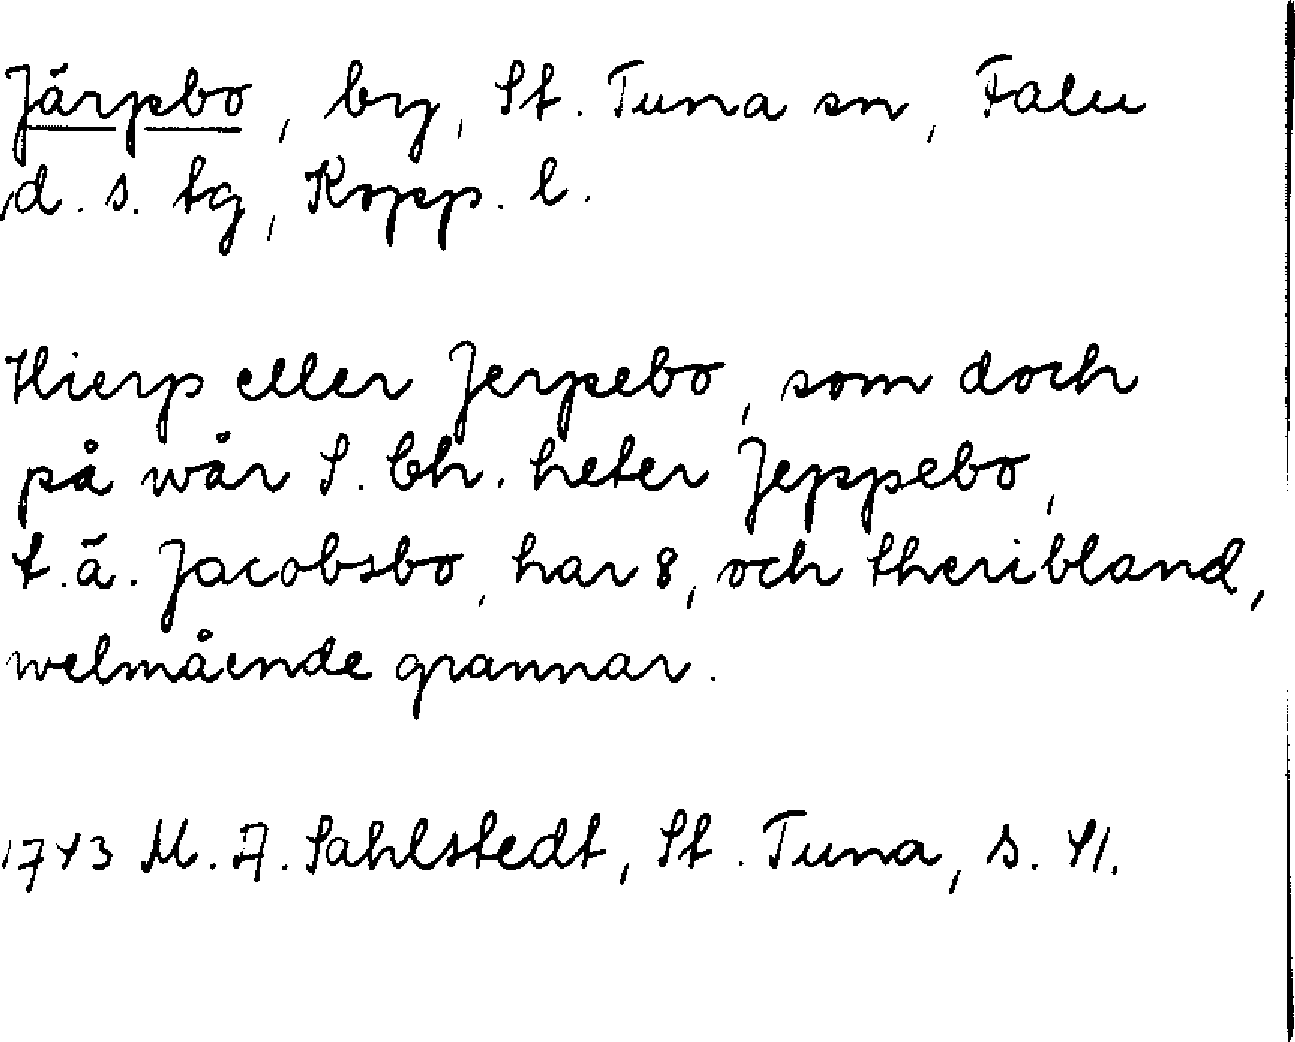 Järpbo, by, St. Tuna sn, Falu
d. s. tg, Kopp. l.
Hierp eller Jerpebo, som doch
på wår S. Ch. heter Jeppebo,
t.ä. Jacobsbo, har 8, och theribland,
welmående grannar.
1743 M. A. Sahlstedt, St. Tuna, s. 41.